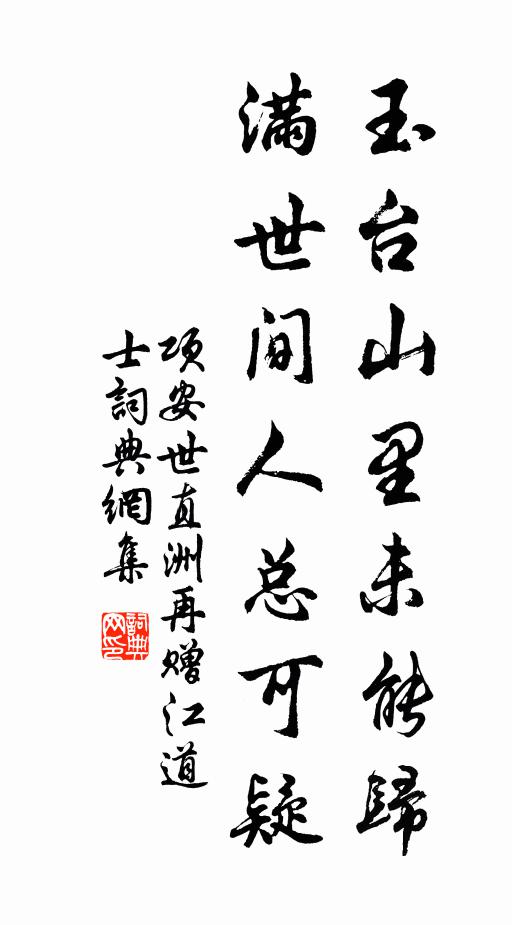 玉台山里未能歸
滿世间人总可疑
项安世直洲再赠江道
士詞典網集
詞典
网印